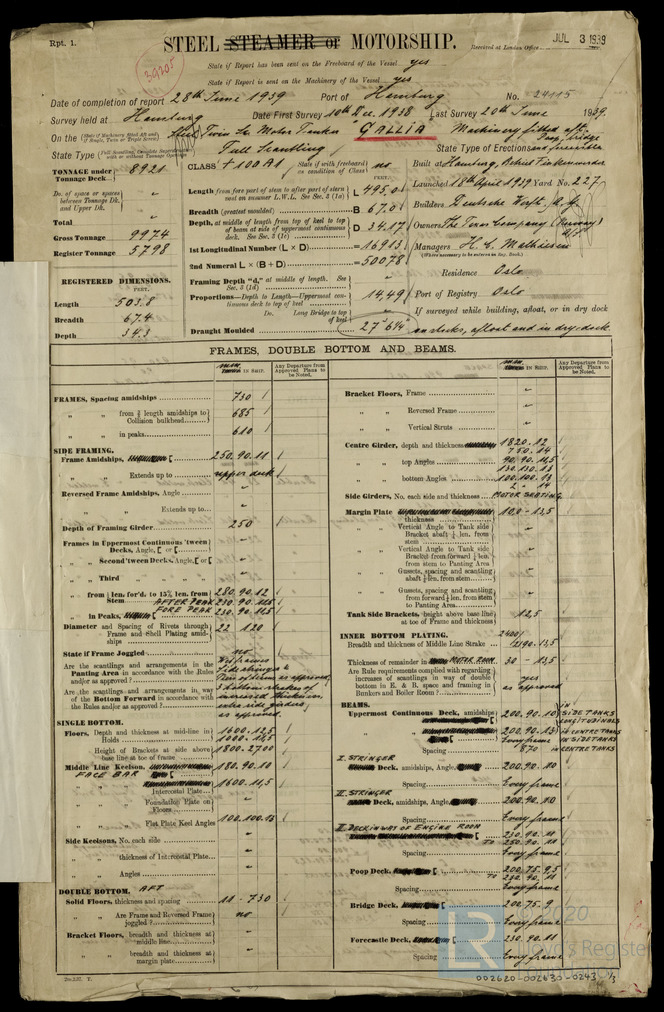 Rpt. 1.
STEEL STEAMER or MOTORSHIP.
Received at London Office
JUL 3 1939
State if Report has been sent on the Freeboard of the Vessel yes
State if Report is sent on the Machinery of the Vessel yes
Date of completion of report 28th June 1939 Port of Hamburg No. 24115
Survey held at Hamburg Date First Survey 10th Dec. 1938 Last Survey 20th June 1939.
On the Steel Twin Sc Motor Tanker GALLIA Machinery fitted aft.
State Type Full Scantling State Type of Erections Poop, bridge and forecastle
TONNAGE under Tonnage Deck 8921
Do. of space or spaces between Tonnage Dk. and Upper Dk.
Total
Gross Tonnage 9974
Register Tonnage 5798
REGISTERED DIMENSIONS.
FEET.
Length 503.8
Breadth 67.4
Depth 34.3
CLASS +100A1 State if with freeboard as condition of Class no
Length from fore part of stem to after part of stern post on summer L.W.L. See Sec. 3 (1a) L 495.0
Breadth (greatest moulded) B 67.0
Depth, at middle of length from top of keel to top of beam at side of uppermost continuous deck. See Sec. 3 (1c) D 34.17
1st Longitudinal Number (L × D) = 16913
2nd Numeral L × (B + D) = 50078
Framing Depth "d," at middle of length. See Sec. 3 (1d)
Proportions—Depth to Length—Uppermost continuous deck to top of keel 14,49
Do. Long Bridge to top of keel
Draught Moulded 27' 6¼"
Built at Hamburg, Betrieb Finkenwerder
Launched 18th April 1939 Yard No. 227
Builders Deutsche Werft, A.G.
Owners The Texas Company (Norway) A/S
Managers H. C. Mathiesen
(Where necessary to be entered in Reg. Book.)
Residence Oslo
Port of Registry Oslo
If surveyed while building, afloat, or in dry dock
on stocks, afloat and in dry dock
FRAMES, DOUBLE BOTTOM AND BEAMS.
IN SHIP.
Any Departure from Approved Plans to be Noted.
FRAMES, Spacing amidships 730
" " from ⅗ length amidships to Collision bulkhead 685
" " in peaks 610
SIDE FRAMING.
Frame Amidships, 250.90.11
" " Extends up to upper deck
Reversed Frame Amidships, Angle
" " Extends up to
Depth of Framing Girder 250
Frames in Uppermost Continuous 'tween Decks, Angle, [ or [
" " Second 'tween Decks, Angle, [ or [
" " Third " "
" " from ⅕ len. for'd. to 15% len. from Stem 280.90.12
AFTER PEAK 230.90.11.5
" " in Peaks, FORE PEAK 230.90.11.5
Diameter and Spacing of Rivets through Frame and Shell Plating amidships 22 120
State if Frame Joggled no
Are the scantlings and arrangements in the Panting Area in accordance with the Rules and/or as approved?
Are the scantlings and arrangements in way of the Bottom Forward in accordance with the Rules and/or as approved?
as approved.
SINGLE BOTTOM.
Floors, Depth and thickness at mid-line in Holds 1600.12,5
Height of Brackets at side above base line at toe of frame 1800-2700
Middle Line Keelson, FACE BAR 180.90.10
1600.11,5
" " Intercostal Plate
" " Foundation Plate on Floors
" " Flat Plate Keel Angles 100.100.15
Side Keelsons, No. each side
" " thickness of Intercostal Plate
" " Angles
DOUBLE BOTTOM, AFT
Solid Floors, thickness and spacing 11 - 730
" " Are Frame and Reversed Frame joggled? no
Bracket Floors, breadth and thickness at middle line
" " breadth and thickness at margin plate
IN SHIP.
Any Departure from Approved Plans to be Noted.
Bracket Floors, Frame
" " Reversed Frame
" " Vertical Struts
Centre Girder, depth and thickness 1820.12
750.14
" " top Angles 90.90.11,5
130.130.13
" " bottom Angles 100.100.13
Side Girders, No. each side and thickness MOTOR SEATING
Margin Plate thickness 10,0 - 13,5
" " Vertical Angle to Tank side Bracket abaft ¼ len. from stem
" " Vertical Angle to Tank side Bracket from forward ¼ len. from stem to Panting Area
" " Gussets, spacing and scantling abaft ¼ len. from stem
" " Gussets, spacing and scantling from forward ¼ len. from stem to Panting Area
Tank Side Brackets, height above base line at toe of Frame and thickness 12,5
INNER BOTTOM PLATING.
Breadth and thickness of Middle Line Strake
Thickness of remainder in MOTOR ROOM 30 - 13,5
Are Rule requirements complied with regarding increases of scantlings in way of double bottom in E. & B. space and framing in Bunkers and Boiler Room? yes as approved
BEAMS.
Uppermost Continuous Deck, amidships 200.90.10 IN SIDE TANKS
LONGITUDINALS
200.90.13 IN CENTRE TANKS
Every frame IN SIDE TANKS
Spacing 870 IN CENTRE TANKS
I. STRINGER
Deck, amidships, Angle, 200.90.10
Spacing Every frame
II. STRINGER
Deck, amidships, Angle, 200.90.10
Spacing Every frame
II. DECK IN WAY OF ENGINE ROOM
230.90.11
TO 250.90.11
Spacing Every frame
Poop Deck, 200.75.9,5
TO 230.90.11
Spacing Every frame
Bridge Deck, 200.75.9
Spacing Every frame
Forecastle Deck, 230.90.11
Spacing Every frame
LR
Lloyd's Register
002620-002630-0243 1/3